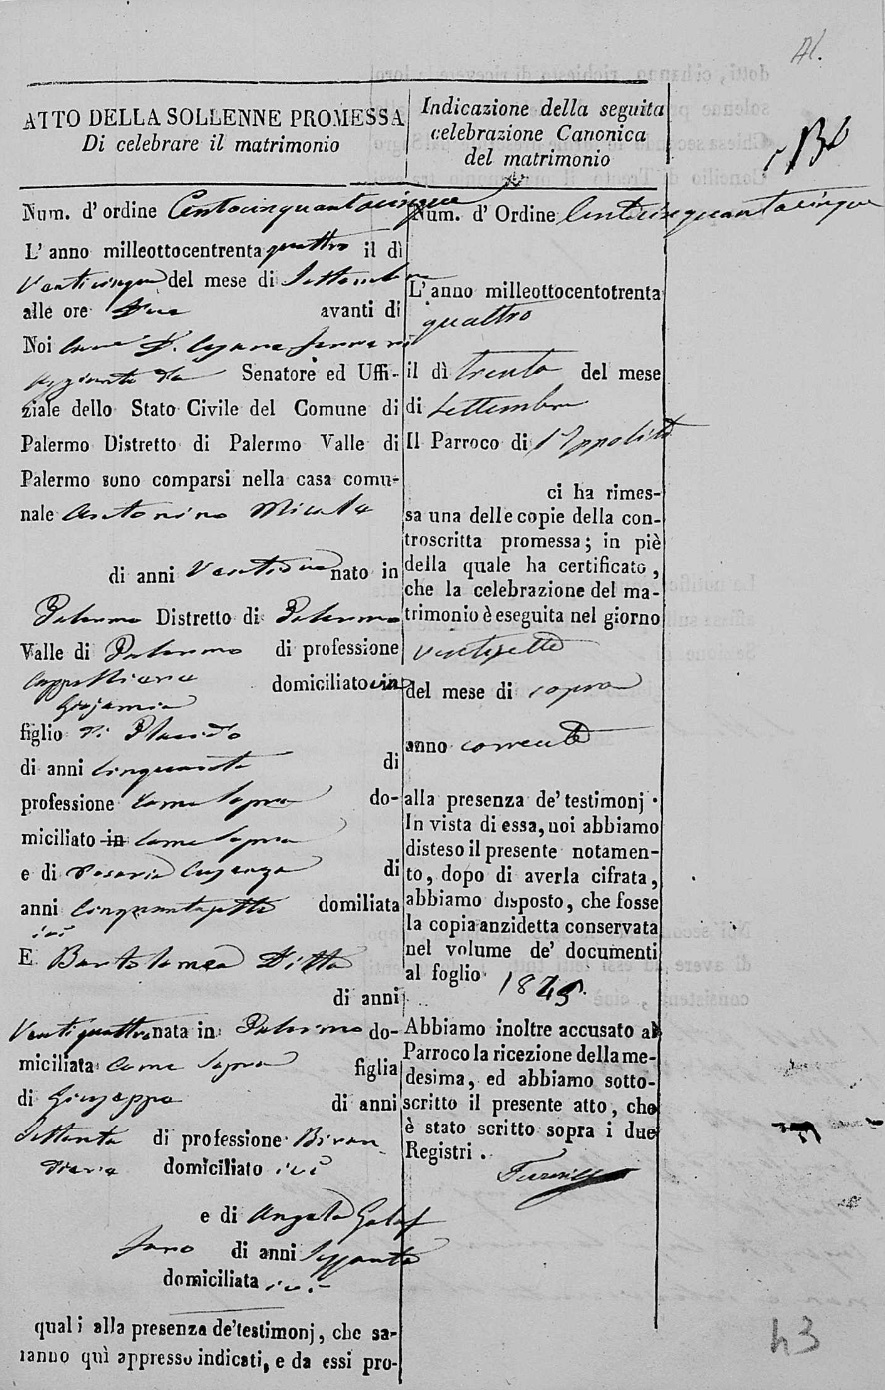 Al.
ATTO DELLA SOLLENNE PROMESSA
Di celebrare il matrimonio
Num. d' ordine Centocinquantacinque
L' anno milleottocentrenta quattro il dì
Venticinque del mese di Settembre
alle ore Due avanti di
Noi D. Senatore ed Uffi-
ziale dello Stato Civile del Comune di
Palermo Distretto di Palermo Valle di
Palermo sono comparsi nella casa comu-
nale Antonino
di anni Ventidue nato in
Palermo Distretto di Palermo
Valle di Palermo di professione
domiciliato in
figlio di Placido
di anni Cinquanta di
professione come sopra do-
miciliato in come sopra
e di Rosaria di
anni Cinquantasette domiliata
ivi
E Bartolomea Ditta
di anni
Ventiquattro nata in Palermo do-
miciliata Come Sopra figlia
di Giuseppe di anni
Settanta di professione
domiciliato ivi
e di Angela
di anni Sessanta
domiciliata ivi
quali alla presenza de' testimonj, che sa-
ranno quì appresso indicati, e da essi pro-
Indicazione della seguita
celebrazione Canonica
del matrimonio
Num. d' Ordine Centocinquantacinque
L' anno milleottocentotrenta
quattro
il dì trenta del mese
di Settembre
Il Parroco di S Ippolito
ci ha rimes-
sa una delle copie della con-
troscritta promessa; in piè
della quale ha certificato,
che la celebrazione del ma-
trimonio è eseguita nel giorno
ventisette
del mese di sopra
anno corrente
alla presenza de' testimonj
In vista di essa, noi abbiamo
disteso il presente notamen-
to, dopo di averla cifrata,
abbiamo disposto, che fosse
la copia anzidetta conservata
nel volume de' documenti
al foglio
Abbiamo inoltre accusato al
Parroco la ricezione della me-
desima, ed abbiamo sotto-
scritto il presente atto, che
è stato scritto sopra i due
Registri.
43